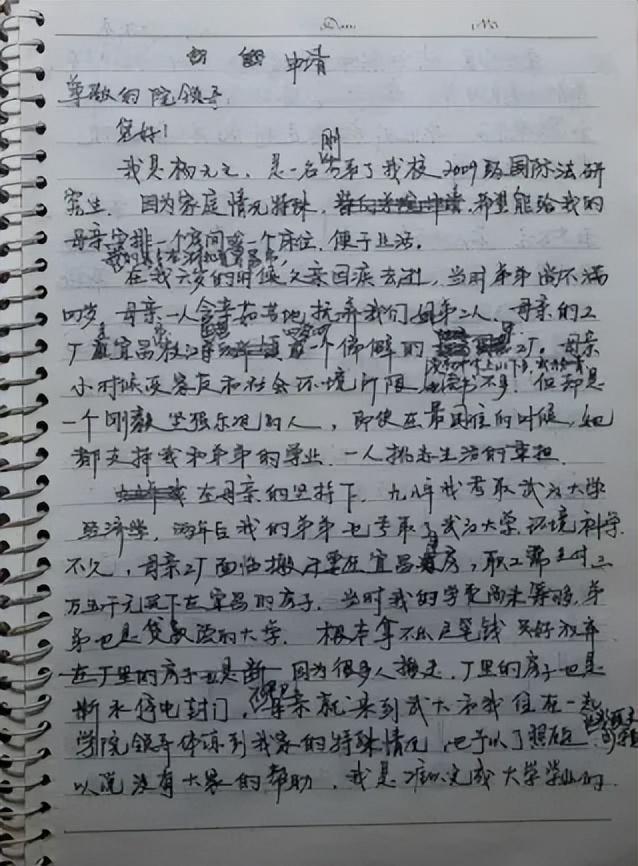 申请
尊敬的院领导
您好!
刚
我是杨元元,是一名考取了我校2009级国际法研
究生.因为家庭情况特殊,希望能给我的
母亲安排一个房间或一个床位.便于生活.
在我六岁的时候父亲因病去世,当时弟弟尚不满
四岁.母亲一人含辛茹苦地抚养我们姐弟二人.母亲的工
厂是宜昌枝江一个偏僻的工厂.母亲
小时候受家庭和社会环境所限,读书不多.但却是
一个刚毅坚强乐观的人,即使在最困难的时候,她
都支持我和弟弟的学业.一人挑起生活的重担.
在母亲的坚持下.九八年我考取武汉大学
经济学,两年后我的弟弟也考取了武汉大学环境科学.
不久,母亲工厂面临搬迁要在宜昌房,职工需支付三
万五千元买下在宜昌的房子.当时我的学费尚未筹够,弟
弟也是贷款读的大学.根本拿不出这笔钱只好放弃
在厂里的房子也是断 因为很多人搬走.厂里的房子也是
断水停电封门,母亲就来到武大和我住在一起
学院领导体谅到我家的特殊情况,也予以了照顾.可
以说没有大家的帮助,我是难以完成大学学业的.